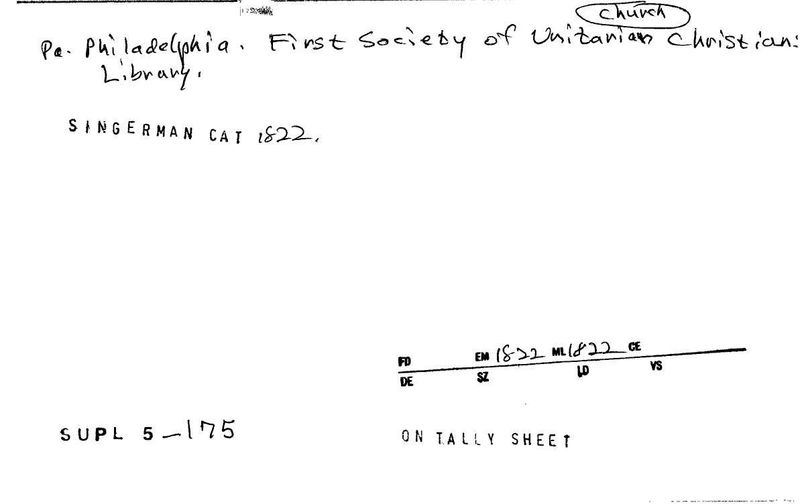 church
Pa. Philadelphia. First Society of Unitarian Christians
Library.
SINGERMAN CAT 1822.
FD EM 1822 ML 1822 CE
DE SZ LD YS
SUPL 5-175
ON TALLY SHEET